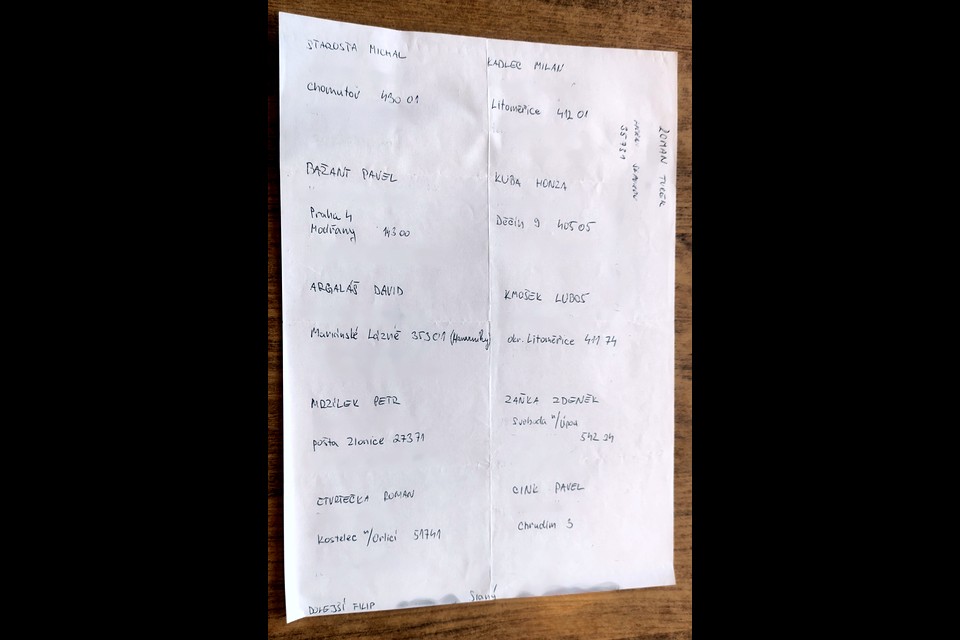 STAROSTA MICHAL
Chomutov 430 01
BAŽANT PAVEL
Praha 4
Modřany 14300
ARGALÁŠ DAVID
Mariánské Lázně 353 01
MRZÍLEK PETR
pošta Zlonice 27371
ČTVRTEČKA ROMAN
Kostelec n/Orlicí 51741
DOLEJŠÍ FILIP
Slaný
KADLEC MILAN
Litoměřice 412 01
KUBA HONZA
Děčín 9 40505
KMOŠEK LUBOŠ
okr. Litoměřice 411 74
ZAŇKA ZDENĚK
Svoboda n/Úpou
542 24
CINK PAVEL
Chrudim 3
ROMAN
35731